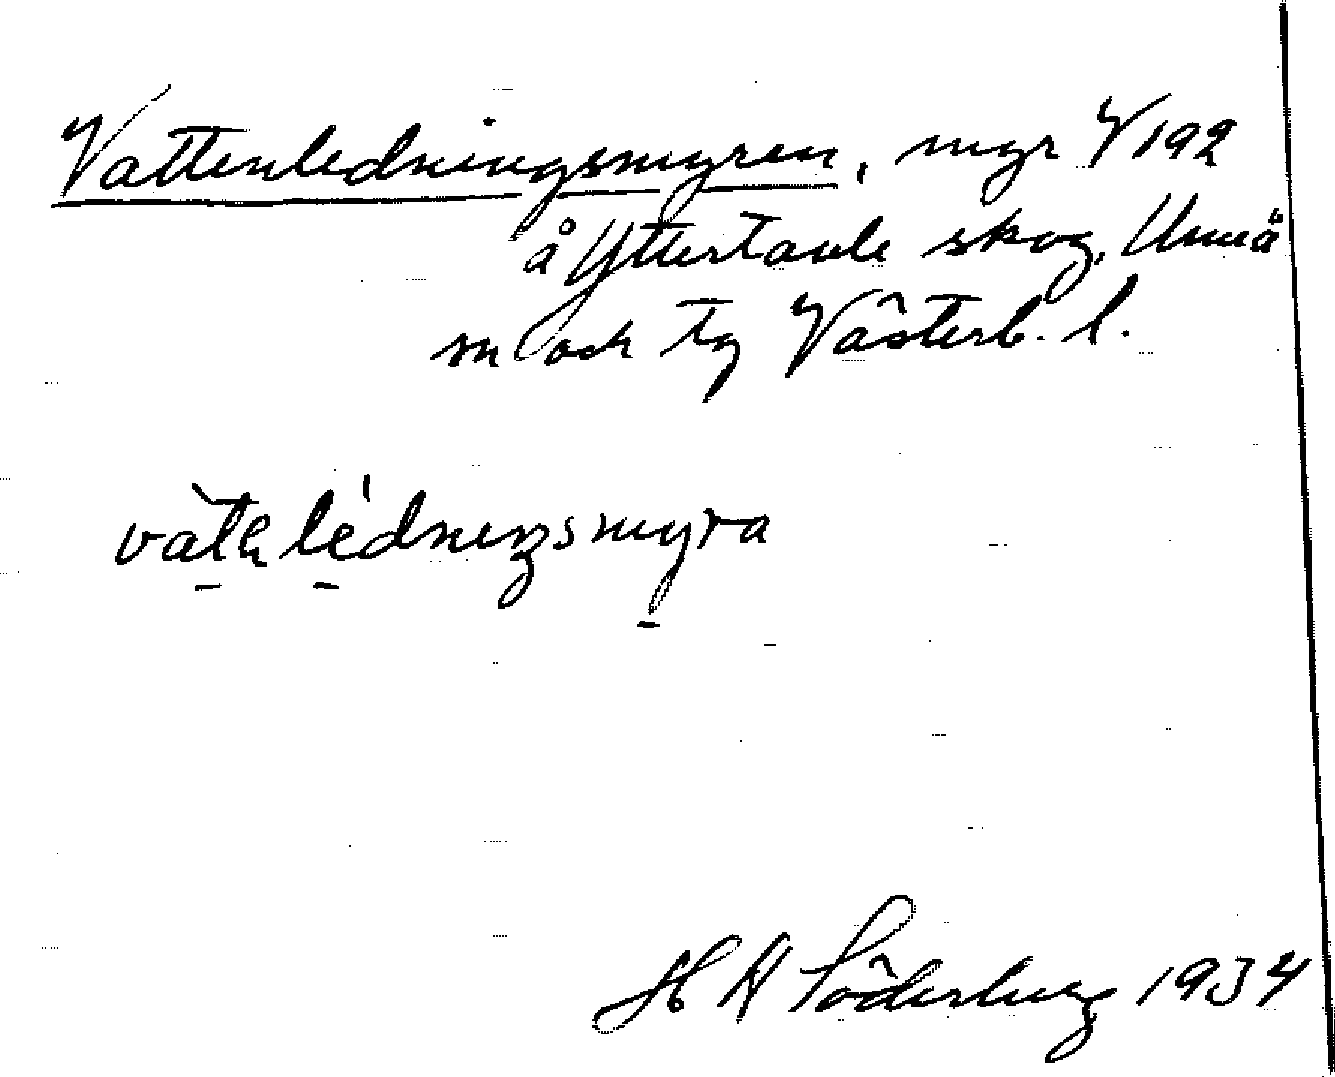 Vattenledningsmyren, myr V 192
å Yttertavle skog, Umeå
sn och tg Västerb. l.
H A Söderberg 1934